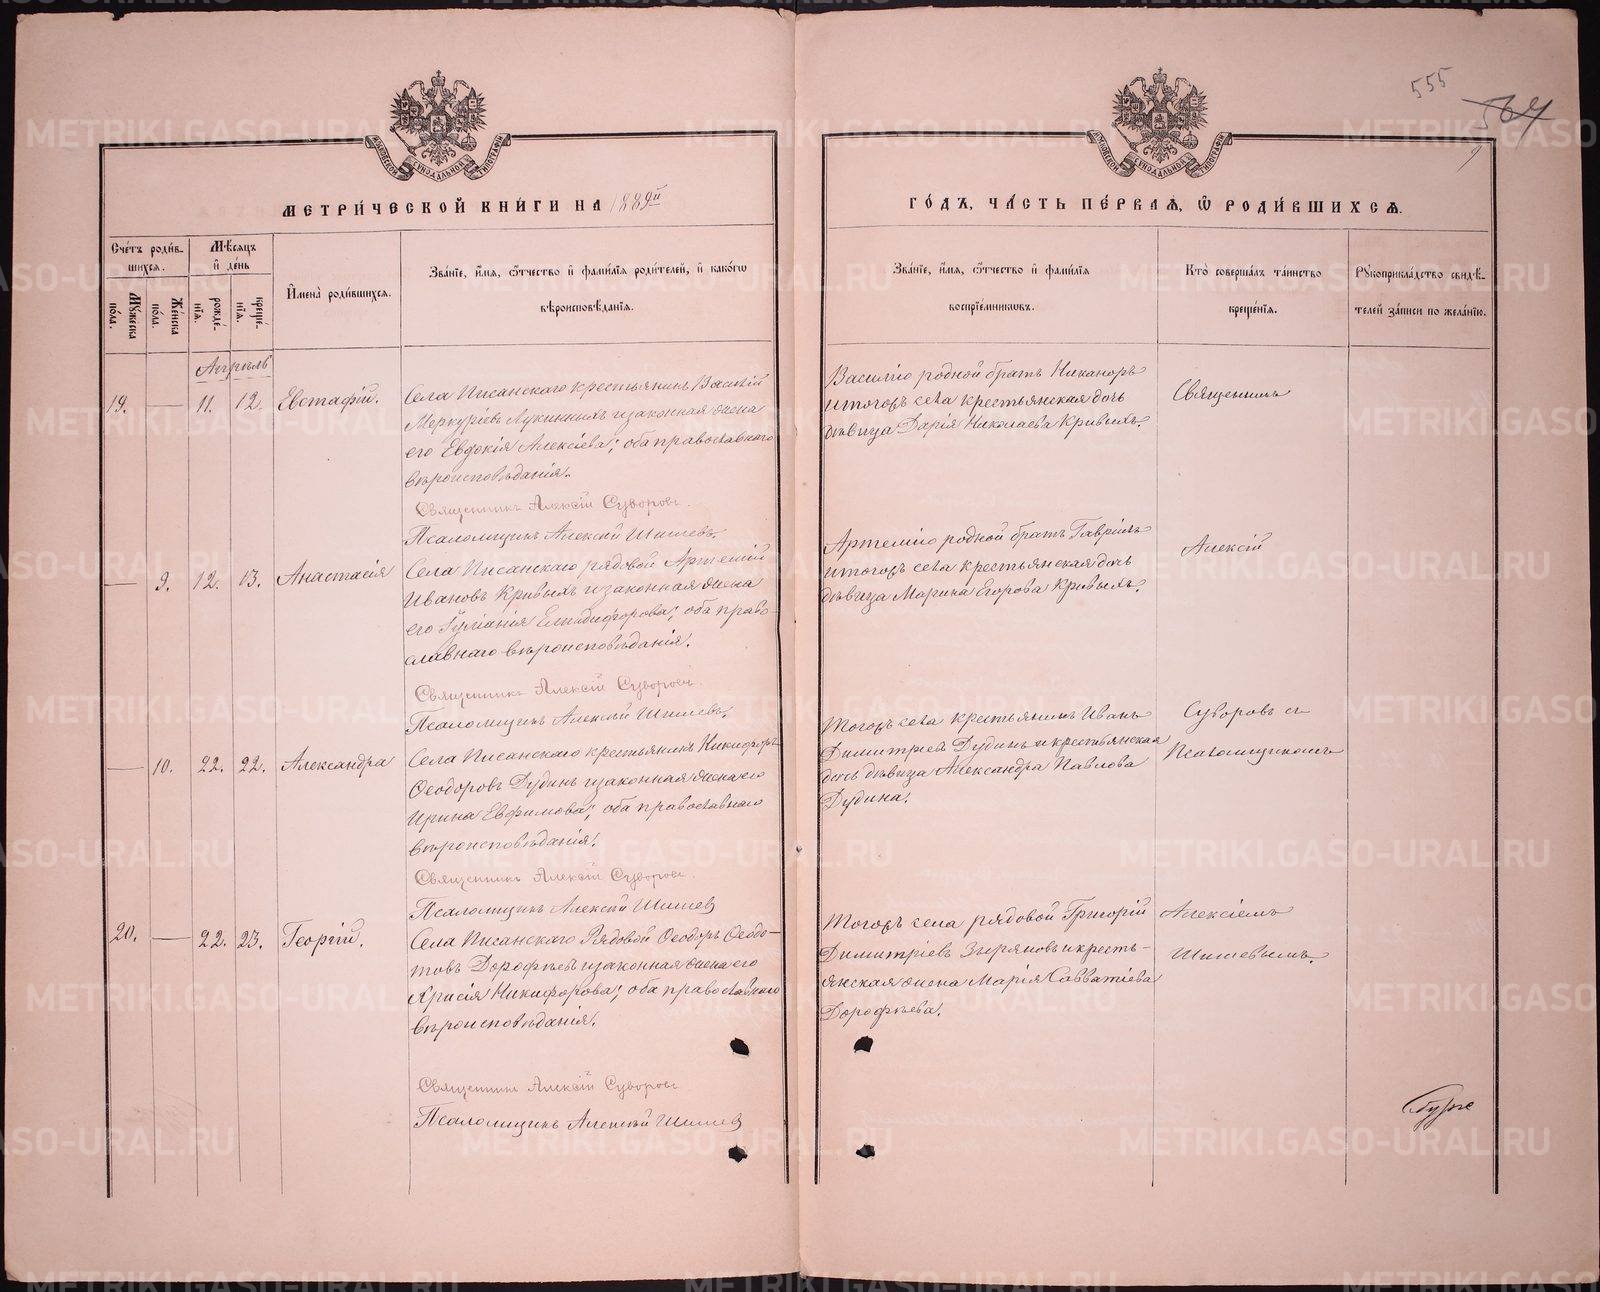 555
МЕТРИ́ЧЕСКОЙ КНИ́ГИ НА 1889й
ГО́ДЪ, ЧА́СТЬ ПЕ́РВАЯ, Ѿ РОДИ́ВШИХСЯ.
Сче́тъ роди́в-
шихся.
Мѣ́сяцъ
и҆ де́нь
Му́жеска
по́ла.
Же́нска
по́ла.
рожде́-
нїя.
креще́-
нїя.
И҆мена̀ роди́вшихся.
Зва́нїе, и҆́мя, ѻ҆́тчество и҆ фами́лїя роди́телей, и҆ како́гѡ
вѣроисповѣ́данїя.
Зва́нїе, и҆́мя, ѻ҆́тчество и҆ фами́лїя
воспрїе́мникѡвъ.
Кто̀ соверша́лъ та́инство
креще́нїя.
Рꙋкоприкла́дство свидѣ́-
телей за́писи по жела́нїю.
Апрѣль
19. — 11. 12. Евстафій.
Села Писанскаго крестьянинъ Василій
Меркуріевъ Лукиныхъ и законная жена
его Евдокія Алексіева; оба православнаго
вѣроисповѣданія.
Священникъ Алексій Суворовъ.
Псаломщикъ Алексій Шишевъ.
Василію родной братъ Никаноръ
и тогожъ села крестьянская дочь
дѣвица Дарія Николаева Кривыхъ.
Священникъ
— 9. 12. 13. Анастасія
Села Писанскаго рядовой Артемій
Ивановъ Кривыхъ и законная жена
его Іуліанія Елпидифорова; оба право-
славнаго вѣроисповѣданія.
Священникъ Алексій Суворовъ.
Псаломщикъ Алексій Шишевъ.
Артемію родной братъ Гавріилъ
и тогожъ села крестьянская дочь
дѣвица Марина Егорова Кривыхъ.
Алексій
— 10. 22. 22. Александра
Села Писанскаго крестьянинъ Никифоръ
Ѳеодоровъ Дудинъ и законная жена его
Ирина Евфимова; оба православнаго
вѣроисповѣданія.
Священникъ Алексій Суворовъ.
Псаломщикъ Алексій Шишевъ
Тогожъ села крестьянинъ Иванъ
Димитріевъ Дудинъ и крестьянская
дочь дѣвица Александра Павлова
Дудина.
Суворовъ съ
Псаломщикомъ
20. — 22. 23. Георгій.
Села Писанскаго Рядовой Ѳеодоръ Ѳеодо-
товъ Дорофѣевъ и законная жена его
Никифорова; оба православнаго
вѣроисповѣданія.
Священникъ Алексій Суворовъ
Псаломщикъ Алексій Шишевъ
Тогожъ села рядовой Григорій
Димитріевъ Зыряновъ и кресть-
янская жена Марія Савватіева
Дорофѣева.
Алексіемъ
Шишевымъ.
METRIKI.GASO-URAL.RU